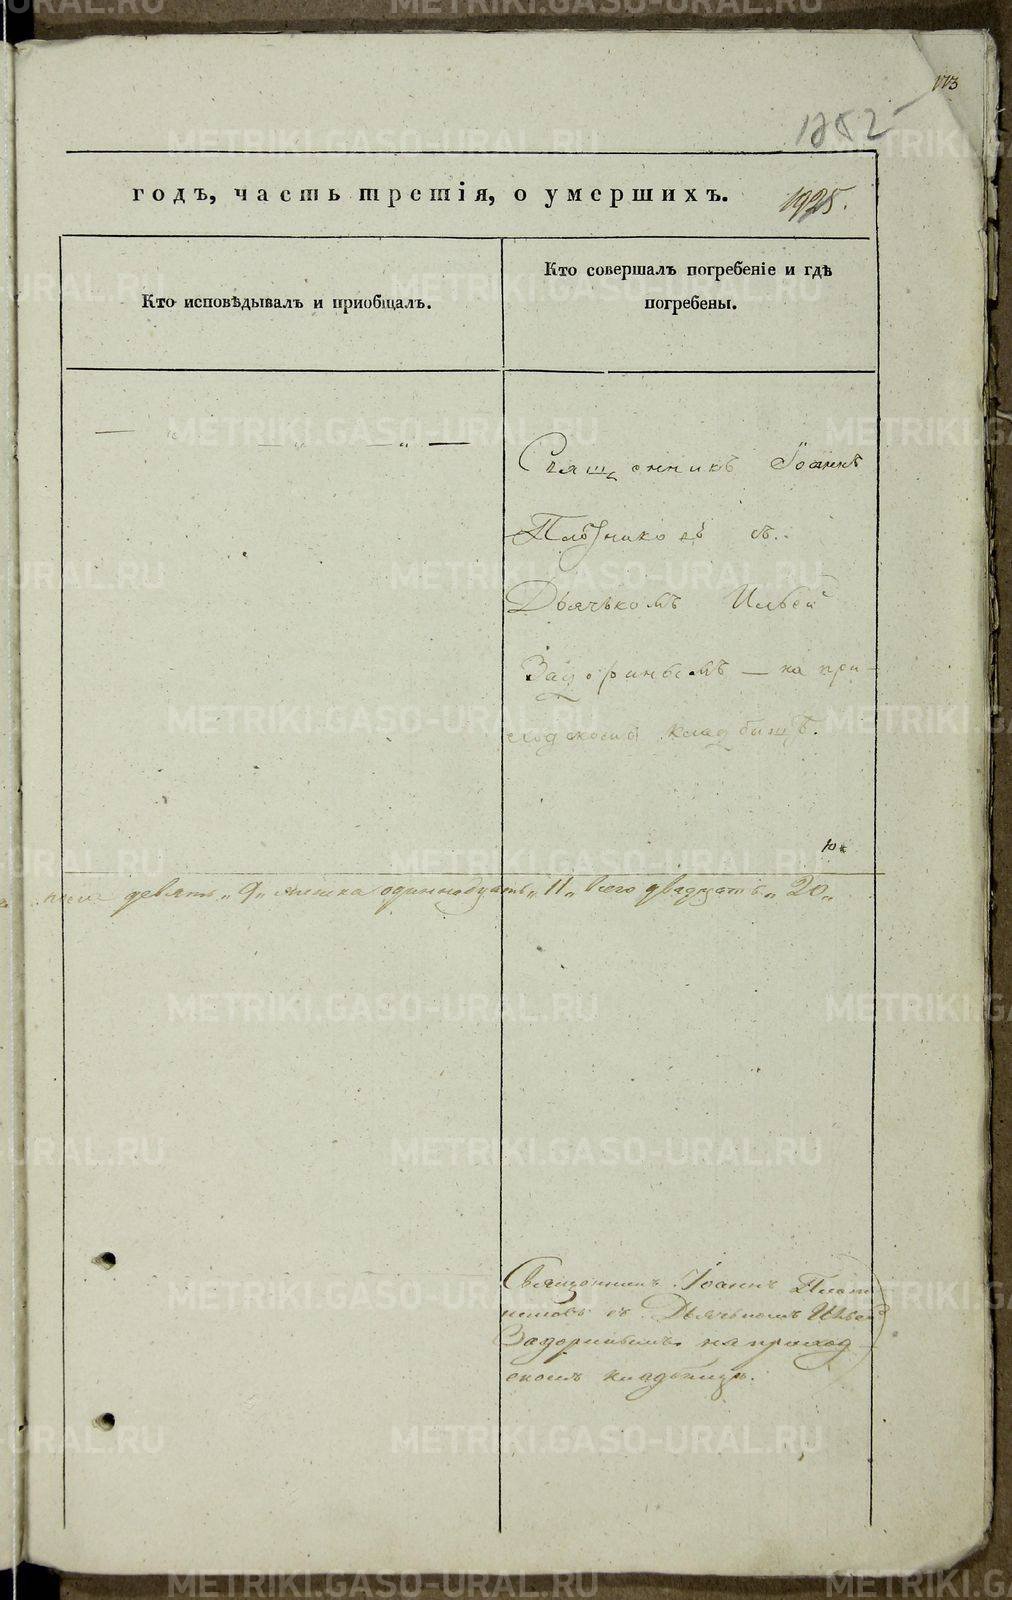 173
1252
годъ, часть третія, о умершихъ. 1925.
Кто исповѣдывалъ и приобщалъ.
Кто совершалъ погребеніе и гдѣ
погребены.
— „ — „ — „ —
Священникъ Іоаннъ
Плотниковъ съ
Дьячькомъ Ильей
на при-
ходскомъ кладбищѣ.
девять „9„ женска одиннадцать „11„ всего двадцать „20„
Священникъ Іоаннъ Плот
никовъ съ Дьячькомъ Ильей
на приход
скомъ кладбищѣ.
METRIKI.GASO-URAL.RU